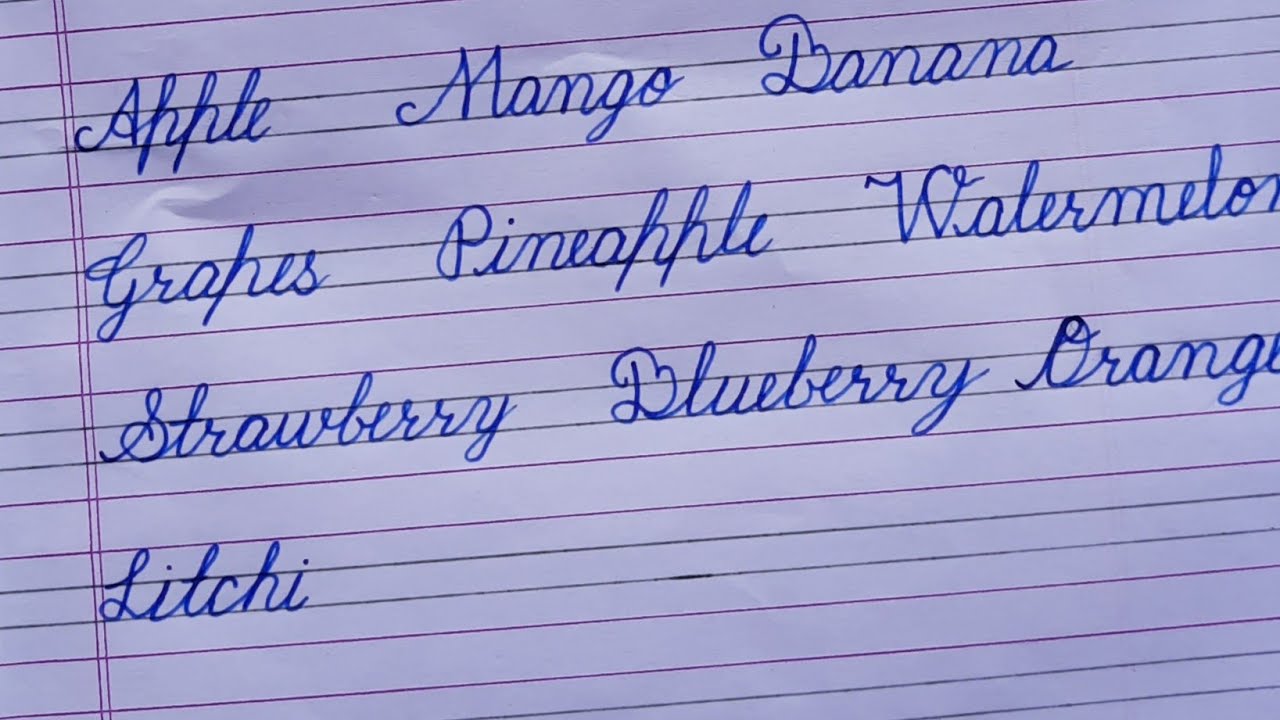 Apple Mango Banana
Grapes Pineapple Watermelon
Strawberry Blueberry Orange
Litchi